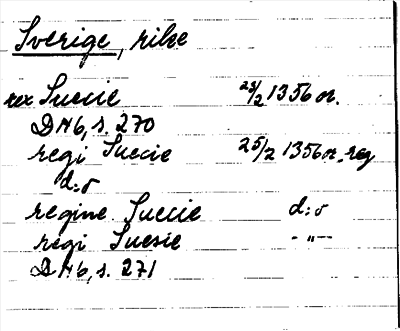 Sverige, rike
rex Suecie 23/2 1356 or.
DN6, s. 270
regi Suecie 25/2 1356 or. reg
d:o
regine Suecie d:o
regi Suesie - " -
DN6, s. 271